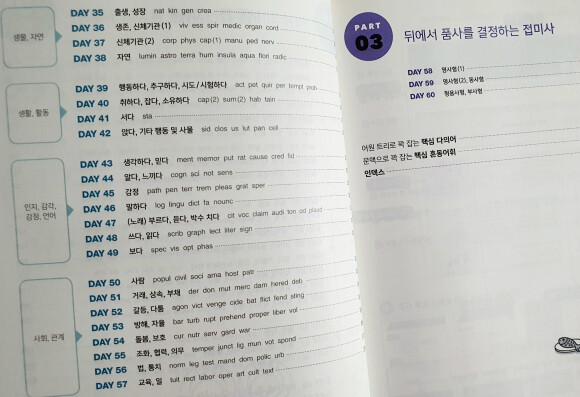 생물, 자연
DAY 35 출생, 성장 nat kin gen crea
DAY 36 생존, 신체기관(1) viv ess spir medic organ cord
DAY 37 신체기관(2) corp phys cap(1) manu ped nerv
DAY 38 자연 lumin astro terra hum insula aqua flori radic
생활, 활동
DAY 39 행동하다, 추구하다, 시도/시험하다 act pet quir per tempt pub
DAY 40 취하다, 잡다, 소유하다 cap(2) sum(2) hab tain
DAY 41 서다 sta
DAY 42 앉다, 기타 행동 및 사물 sid clos us lut pan cell
인지, 감각,
감정, 언어
DAY 43 생각하다, 믿다 ment memor put rat cause cred fid
DAY 44 알다, 느끼다 cogn sci not sens
DAY 45 감정 path pen terr trem pleas grat sper
DAY 46 말하다 log lingu dict fa nounc
DAY 47 (노래) 부르다, 듣다, 박수 치다 cit voc claim audi ton od plaud
DAY 48 쓰다, 읽다 scrib graph lect liter sign
DAY 49 보다 spec vis opt phas
사회, 관계
DAY 50 사람 popul civil soci ama host patr
DAY 51 거래, 상속, 부채 der don mut merc dam hered deb
DAY 52 갈등, 다툼 agon vict venge cide bat flict fend sting
DAY 53 방해, 자율 bar turb rupt prehend proper liber vol
DAY 54 돌봄, 보호 cur nutr serv gard war
DAY 55 조화, 협력, 의무 temper junct lig mun vot spond
DAY 56 법, 통치 norm leg test mand dom polic urb
DAY 57 교육, 일 tuit rect labor oper art cult text
PART
03
뒤에서 품사를 결정하는 접미사
DAY 58 명사형(1)
DAY 59 명사형(2), 동사형
DAY 60 형용사형, 부사형
어원 트리로 꽉 잡는 핵심 다의어
문맥으로 꽉 잡는 핵심 혼동어휘
인덱스